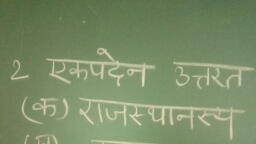 2 एकपदेन उत्तरत
(क) राजस्थानस्य